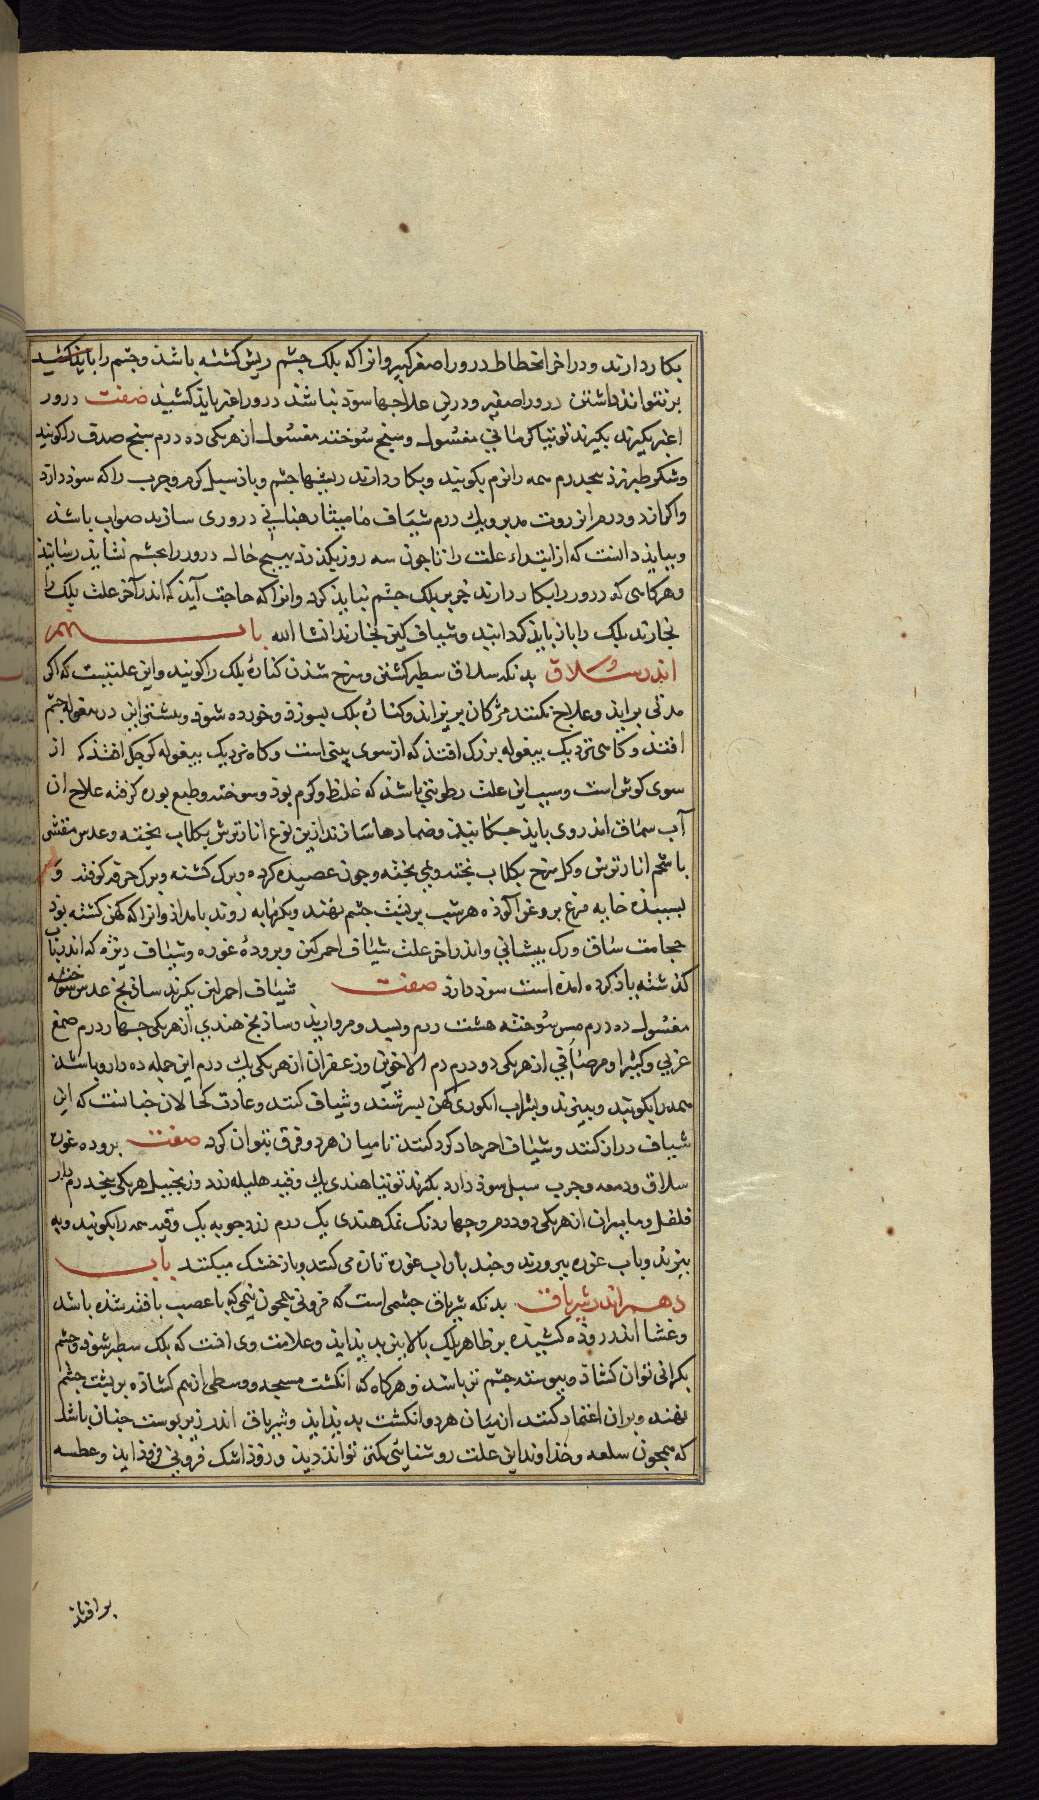 بکار دارند و در اخر انحطاط درور اصفر کبیر و انرا که پلک چشم ریش کشته باشد و چشم را باید کشید
بر نتواند داشتن درور اصفر و درین علاجها سود نباشد درور اغبر باید کشید صفت درور
اغبر بکیرند بکیرند توتیا کرمانی مغسول و سنج سوخته مغسول از هریکی ده درم سنج صدف را کویند
و شکر طبرزد پنجدرم همه را نرم بکوبند و بکار دارند ریشها چشم و باد سبل کرم و جرب را که سود دارد
و اکر اندر دو درم انزروت مدبر و یک درم شیاف مامیثا رهبانی دروری سازند صواب باشد
و بباید دانست که از ابتداء علت را تا چون سه روز بکذرد بهیچ حال درور را بچشم نشاید رسانید
و هرکاهی که درور را بکار دارند چرب پلک چشم نباید کرد و انرا که حاجت آید که اندر آخر علت پلک را
بخارند پلک را باز باید کردانید و شیاف کین بخارند انشا الله باب نهم
اندر سلاق بدنکه سلاق سطبر کشتن و سرخ شدن کناره پلک را کویند و این علتیست که اکر
مدتی برآید و علاج نکنند مژکان بریزاند و کناره پلک بسوزد و خورده شود و بیشتر این در بیغوله چشم
افتد و کاهی نزدیک بیغوله بزرک افتد که از سوی بینی است و کاه نزدیک بیغوله کوچک افتد که از
سوی کوش است و سبب این علت رطوبتی باشد که غلیظ و کرم بود و سوخته و طبع بوره کرفته علاج ان
آب سماق اندر وی باید چکانیدن و ضمادها سازند ازین نوع انار ترش بکلاب پخته و عدس مقشر
با شحم انار ترش و کل سرخ بکلاب پخته و بمی پخته و چون عصیده کرده و برک کشنه و برک خرفه کوفته و
بسپیده خایه مرغ بروغن آلوده هر شب بر پشت چشم نهند و بکرمابه روند بامداد و انرا که کهن کشته بود
حجامت ساق و رک پیشانی و اندر اخر علت شیاف احمر لین و بروده غوره و شیاف دیزه که اندر باب
کذشته یاد کرده امده است سود دارد صفت شیاف احمر لین بکیرند ساذنج عدس سوخته
مغسول ده درم مس سوخته هشت درم و بسد و مروارید و ساذنج هندی از هریکی چهار درم صمغ
عربی و کتیرا و مرصافی از هریکی دو درم دم الاخوین و زعفران از هریکی یک درم این جمله ده دارو باشد
همه را بکوبند و ببیزند و بشراب انکوری کهن بسرشند و شیاف کنند و عادت کحالان چنانست که این
شیاف دراز کنند و شیاف احمر حاد کرد کنند تا میان هر دو فرق بتوان کرد صفت بروده غوره
سلاق و دمعه و جرب سبل سود دارد بکیرند توتیا هندی یک وقیه هلیله زرد و زنجبیل هریکی پنجدرم دار
فلفل و مامیران از هریکی دو درم و چهار دنک نمک هندی یک درم زردچوبه یک وقیه همه را بکوبند و به
بیزند و باب غوره بپرورند و چند بار اب غوره تازه می کنند و باز خشک میکنند باب
دهم اندر شرناق بدنکه شرناق جسمی است که فزونی همچون پیهی که با عصب بافته شده باشد
و غشا اندر روده کشیده بر ظاهر پلک بالایین بدید آید و علامت وی انست که پلک سطبر شود و چشم
بکرانی توان کشاد و پیوسته چشم تر باشد و هرکاه که انکشت مسبحه و وسطی از هم کشاده بر پشت چشم
نهند و بران اعتماد کنند از میان هر دو انکشت بدید آید و شرناق اندر زیر پوست چنان باشد
که همچون سلعه و خداوند این علت روشنایی کمتر تواند دید و زود اشک فزونی فرود اید و عطسه
بر افتد